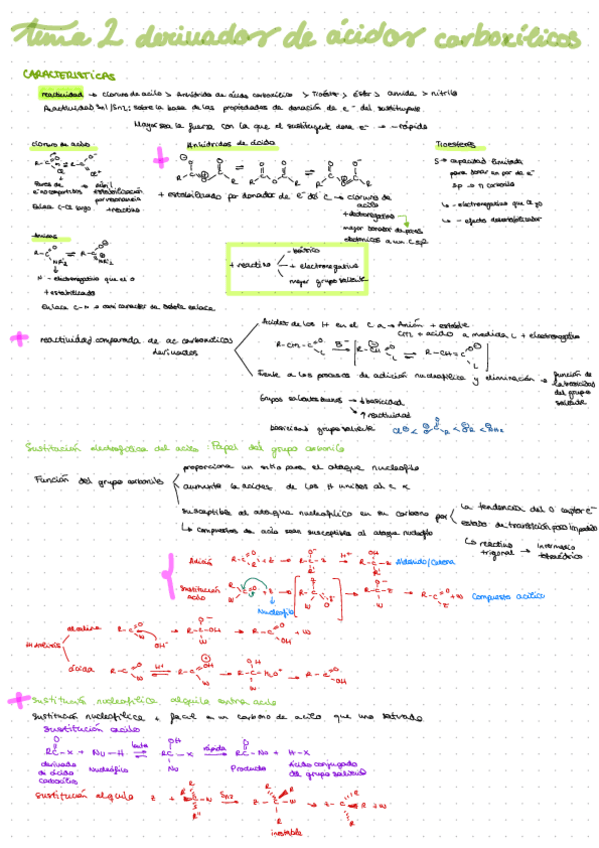 tema 2 derivados de ácidos carboxílicos
CARACTERÍSTICAS
reactividad → cloruro de acilo > Anhídrido de ácido carboxílico > Tioéster > Éster > amida > nitrilo
Reactividad Sn1/Sn2: sobre la base de las propiedades de donación de e- del sustituyente
Mayor sea la fuerza con la que el sustituyente done e- → - rápido
cloruro de acilo
Anhídridos de ácido
Tioésteres
S → capacidad limitada
para donar un par de e-
+ estabilizado por donador de e- del C → cloruro de
acilo
+ electronegativo
mejor donador de pares
electrónicos a un C sp2
- electronegativo que el O
- efecto desestabilizador
Enlace C-Cl largo
+ reactivo
Amidas
N - electronegativo que el O
+ estabilizado
Enlace C-N → con caracter de doble enlace
+ reactivo
- básico
+ electronegativo
mejor grupo saliente
reactividad comparada de ac carboxílicos
derivados
Acidez de los H en el C α → Anión + estable
CM + ácido a medida L + electronegativo
Frente a los procesos de adición nucleofílica y eliminación → función de
la basicidad
del grupo
saliente
Grupos salientes buenos → ↓ basicidad
↑ reactividad
basicidad grupo saliente
Sustitución electrofílica del acilo: Papel del grupo carbonilo
Función del grupo carbonilo
proporciona un sitio para el ataque nucleófilo
aumenta la acidez de los H unidos al C α
susceptible al ataque nucleofílico en su carbono por
la tendencia del O captar e-
estado de transición poco impedido
↳ compuestos de acilo sean susceptible al ataque nucleófilo
↳ reactivo
trigonal → intermedio
tetraédrico
Adición
Aldehído/Cetona
Sustitución
acilo
Compuesto acílico
Nucleófilo
Hidrólisis
alcalina
ácida
Sustitución nucleofílica alquilo contra acilo
Sustitución nucleofílica + fácil en un carbono de acilo que uno saturado
Sustitución acilo
RC-X + Nu-H lenta RC-X rápida RC-Nu + H-X
derivado
de ácido
carboxílico
Nucleófilo
Nu
Producto
Ácido conjugado
del grupo saliente
Sustitución alquilo
SN2
inestable